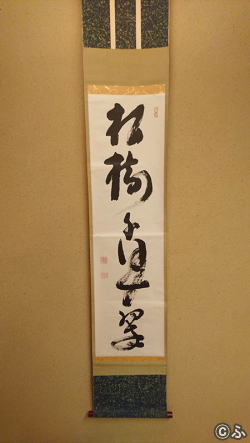 松樹千年翠
©ふ